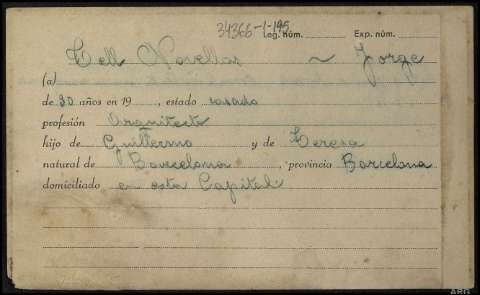 34366-1-195
Leg. núm. Exp. núm.
Tell Novellas ~ Jorge
(a)
de 30 años en 19 , estado casado
profesión Arquitecto
hijo de Guillermo y de Teresa
natural de Barcelona , provincia Barcelona
domiciliado en esta Capital
ARG